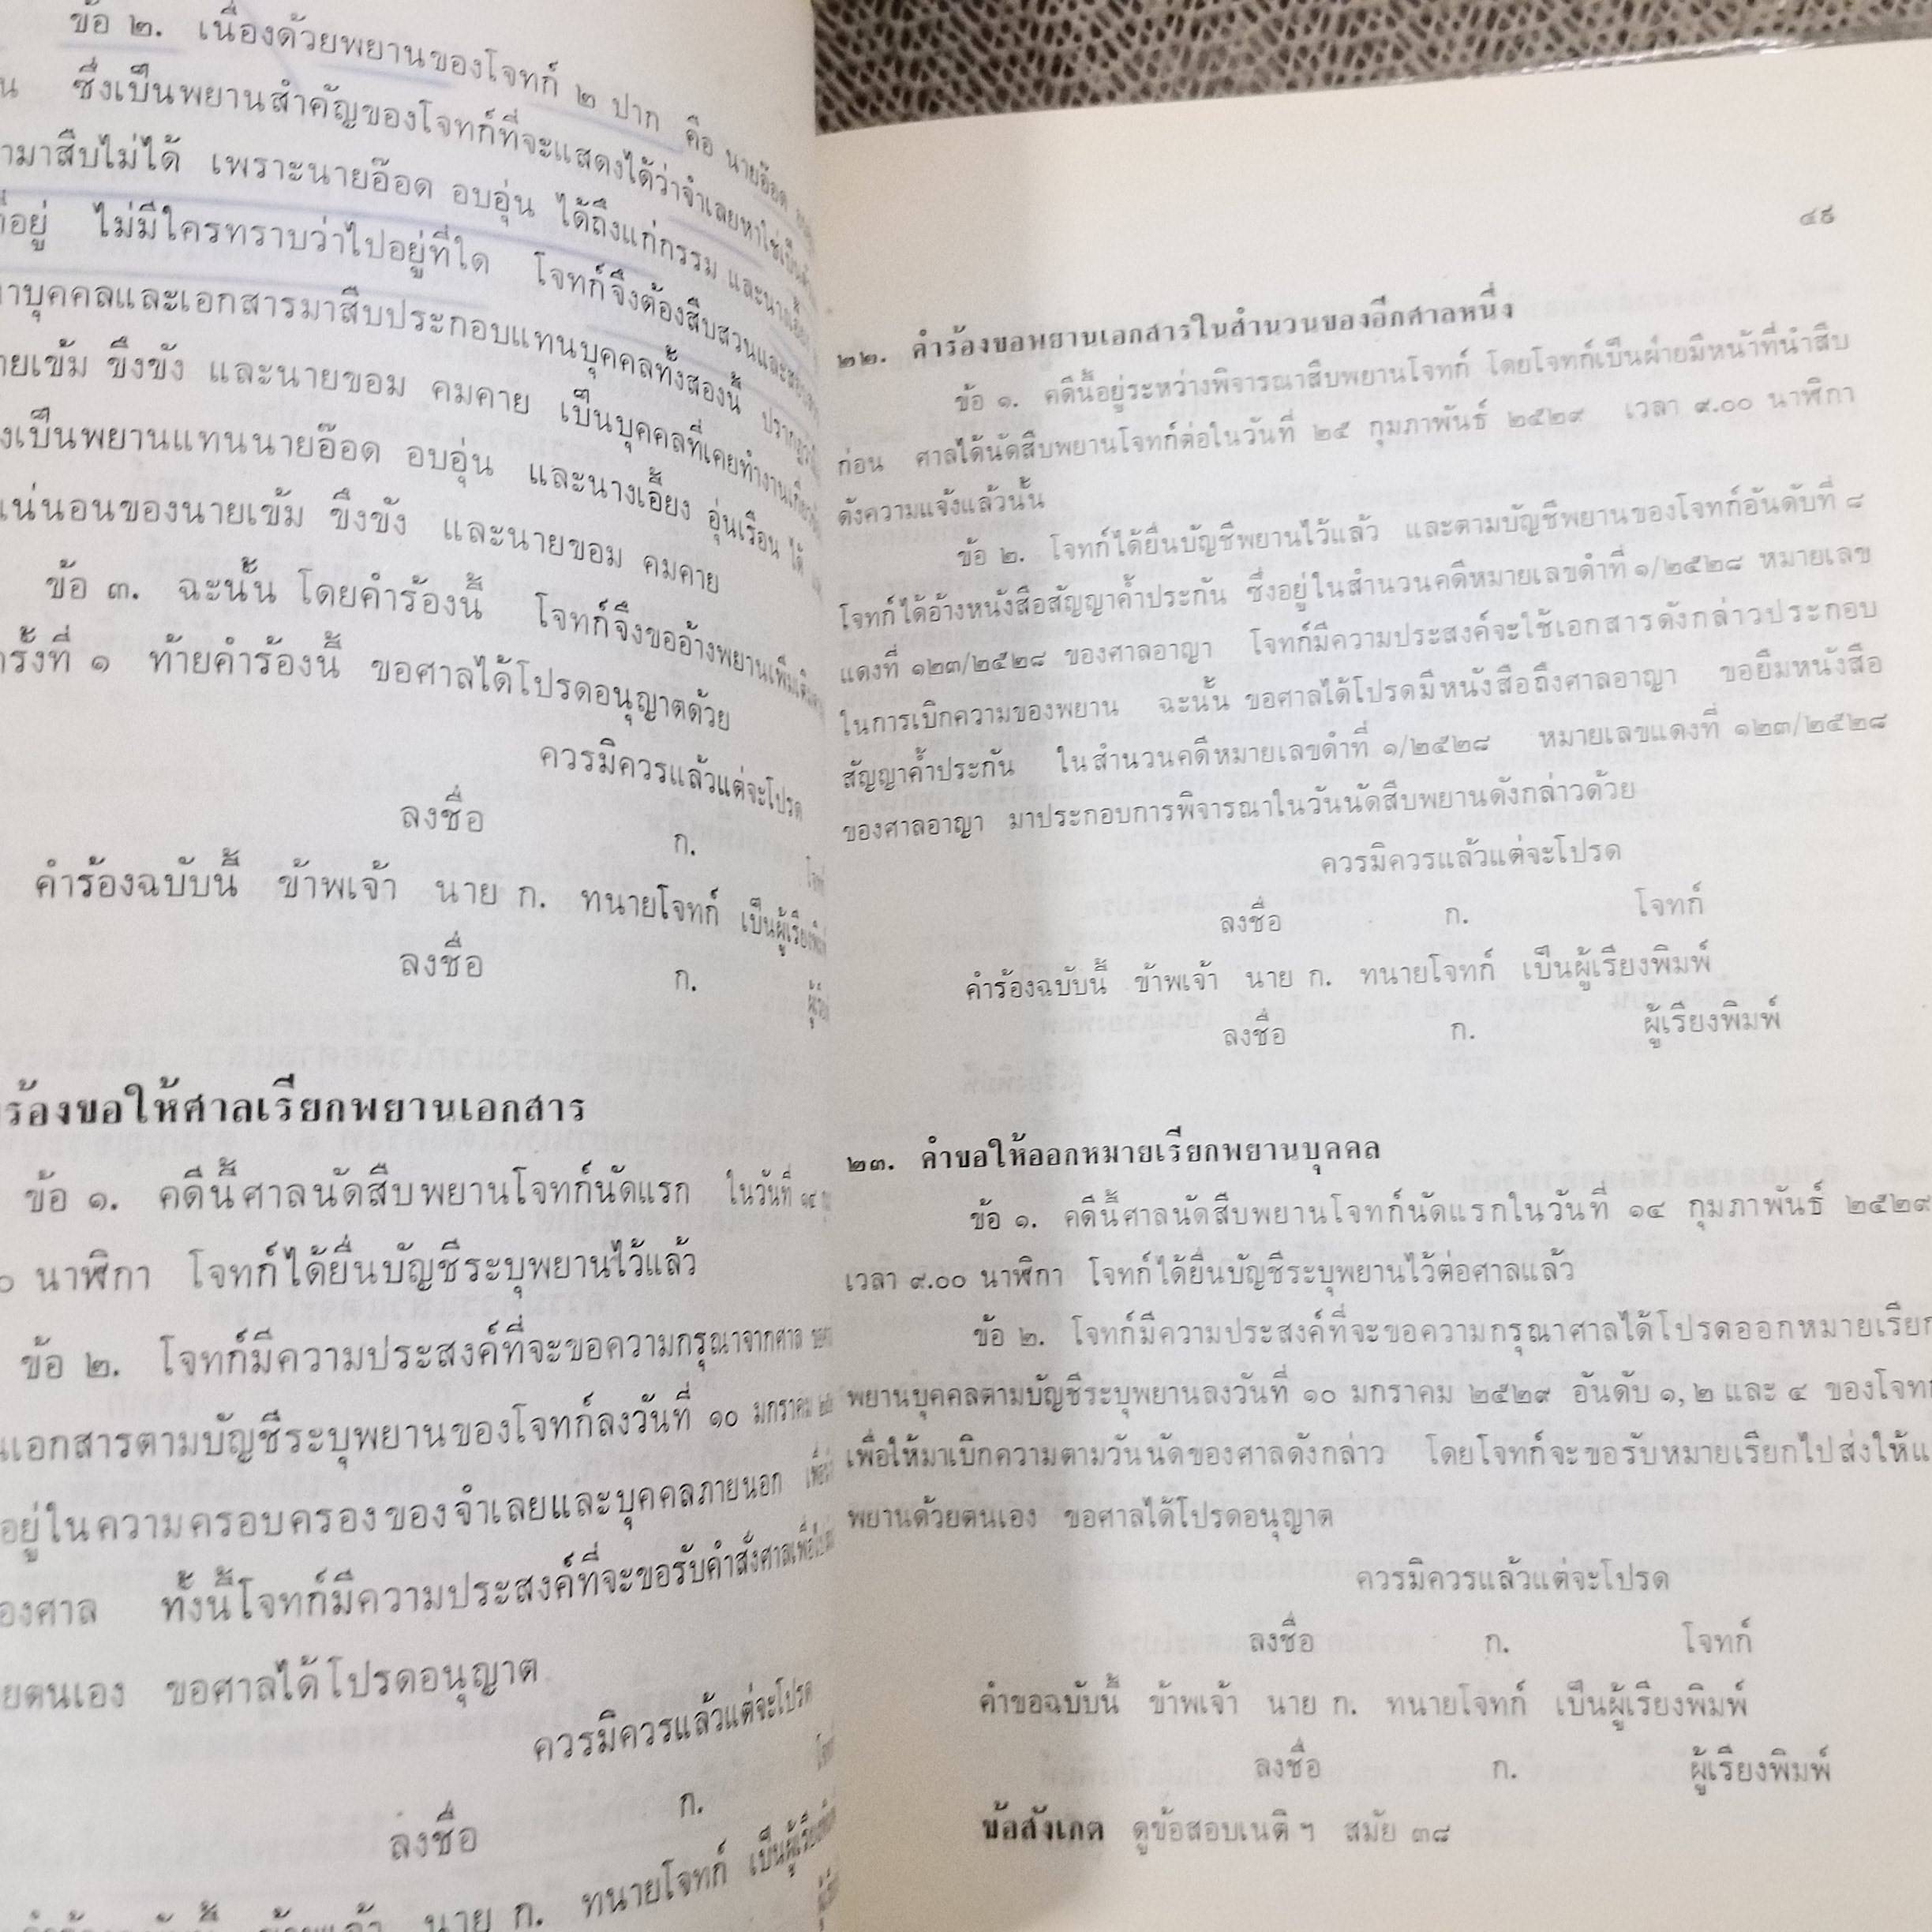 ข้อ ๒. เนื่องด้วยพยานของโจทก์ ๒ ปาก คือ นายอ๊อด
น ซึ่งเป็นพยานสำคัญของโจทก์ที่จะแสดงได้ว่าจำเลยหาใช่เป็น
ามาสืบไม่ได้ เพราะนายอ๊อด อบอุ่น ได้ถึงแก่กรรม และนางเอี้ยง
ี่อยู่ ไม่มีใครทราบว่าไปอยู่ที่ใด โจทก์จึงต้องสืบสวนและ
าบุคคลและเอกสารมาสืบประกอบแทนบุคคลทั้งสองนี้ ปรากฏว่า
ายเข้ม ขึงขัง และนายขอม คมคาย เป็นบุคคลที่เคยทำงาน
งเป็นพยานแทนนายอ๊อด อบอุ่น และนางเอี้ยง อุ่นเรือน ได้
แน่นอนของนายเข้ม ขึงขัง และนายขอม คมคาย
ข้อ ๓. ฉะนั้น โดยคำร้องนี้ โจทก์จึงขออ้างพยานเพิ่มเติม
ครั้งที่ ๑ ท้ายคำร้องนี้ ขอศาลได้โปรดอนุญาตด้วย
ควรมิควรแล้วแต่จะโปรด
ลงชื่อ ก.
คำร้องฉบับนี้ ข้าพเจ้า นาย ก. ทนายโจทก์ เป็นผู้เรียงพิมพ์
ลงชื่อ ก.
ร้องขอให้ศาลเรียกพยานเอกสาร
ข้อ ๑. คดีนี้ศาลนัดสืบพยานโจทก์นัดแรก ในวันที่ ๑๔
๐ นาฬิกา โจทก์ได้ยื่นบัญชีระบุพยานไว้แล้ว
ข้อ ๒. โจทก์มีความประสงค์ที่จะขอความกรุณาจากศาล
นเอกสารตามบัญชีระบุพยานของโจทก์ลงวันที่ ๑๐ มกราคม
อยู่ในความครอบครองของจำเลยและบุคคลภายนอก
องศาล ทั้งนี้โจทก์มีความประสงค์ที่จะขอรับคำสั่งศาลเพื่อ
ยตนเอง ขอศาลได้โปรดอนุญาต
ควรมิควรแล้วแต่จะโปรด
ลงชื่อ ก.
นาย ก. ทนายโจทก์ เป็นผู้เรียงพิมพ์
๔๕
๒๒. คำร้องขอพยานเอกสารในสำนวนของอีกศาลหนึ่ง
ข้อ ๑. คดีนี้อยู่ระหว่างพิจารณาสืบพยานโจทก์ โดยโจทก์เป็นฝ่ายมีหน้าที่นำสืบ
ก่อน ศาลได้นัดสืบพยานโจทก์ต่อในวันที่ ๒๕ กุมภาพันธ์ ๒๕๒๙ เวลา ๙.๐๐ นาฬิกา
ดังความแจ้งแล้วนั้น
ข้อ ๒. โจทก์ได้ยื่นบัญชีพยานไว้แล้ว และตามบัญชีพยานของโจทก์อันดับที่ ๘
โจทก์ได้อ้างหนังสือสัญญาค้ำประกัน ซึ่งอยู่ในสำนวนคดีหมายเลขดำที่ ๑/๒๕๒๘ หมายเลข
แดงที่ ๑๒๓/๒๕๒๘ ของศาลอาญา โจทก์มีความประสงค์จะใช้เอกสารดังกล่าวประกอบ
ในการเบิกความของพยาน ฉะนั้น ขอศาลได้โปรดมีหนังสือถึงศาลอาญา ขอยืมหนังสือ
สัญญาค้ำประกัน ในสำนวนคดีหมายเลขดำที่ ๑/๒๕๒๘ หมายเลขแดงที่ ๑๒๓/๒๕๒๘
ของศาลอาญา มาประกอบการพิจารณาในวันนัดสืบพยานดังกล่าวด้วย
ควรมิควรแล้วแต่จะโปรด
ลงชื่อ ก. โจทก์
คำร้องฉบับนี้ ข้าพเจ้า นาย ก. ทนายโจทก์ เป็นผู้เรียงพิมพ์
ลงชื่อ ก. ผู้เรียงพิมพ์
๒๓. คำขอให้ออกหมายเรียกพยานบุคคล
ข้อ ๑. คดีนี้ศาลนัดสืบพยานโจทก์นัดแรกในวันที่ ๑๔ กุมภาพันธ์ ๒๕๒๙
เวลา ๙.๐๐ นาฬิกา โจทก์ได้ยื่นบัญชีระบุพยานไว้ต่อศาลแล้ว
ข้อ ๒. โจทก์มีความประสงค์ที่จะขอความกรุณาศาลได้โปรดออกหมายเรียก
พยานบุคคลตามบัญชีระบุพยานลงวันที่ ๑๐ มกราคม ๒๕๒๙ อันดับ ๑, ๒ และ ๔ ของโจทก์
เพื่อให้มาเบิกความตามวันนัดของศาลดังกล่าว โดยโจทก์จะขอรับหมายเรียกไปส่งให้แ
พยานด้วยตนเอง ขอศาลได้โปรดอนุญาต
ควรมิควรแล้วแต่จะโปรด
ลงชื่อ ก. โจทก์
คำขอฉบับนี้ ข้าพเจ้า นาย ก. ทนายโจทก์ เป็นผู้เรียงพิมพ์
ลงชื่อ ก. ผู้เรียงพิมพ์
ข้อสังเกต ดูข้อสอบเนติฯ สมัย ๓๘